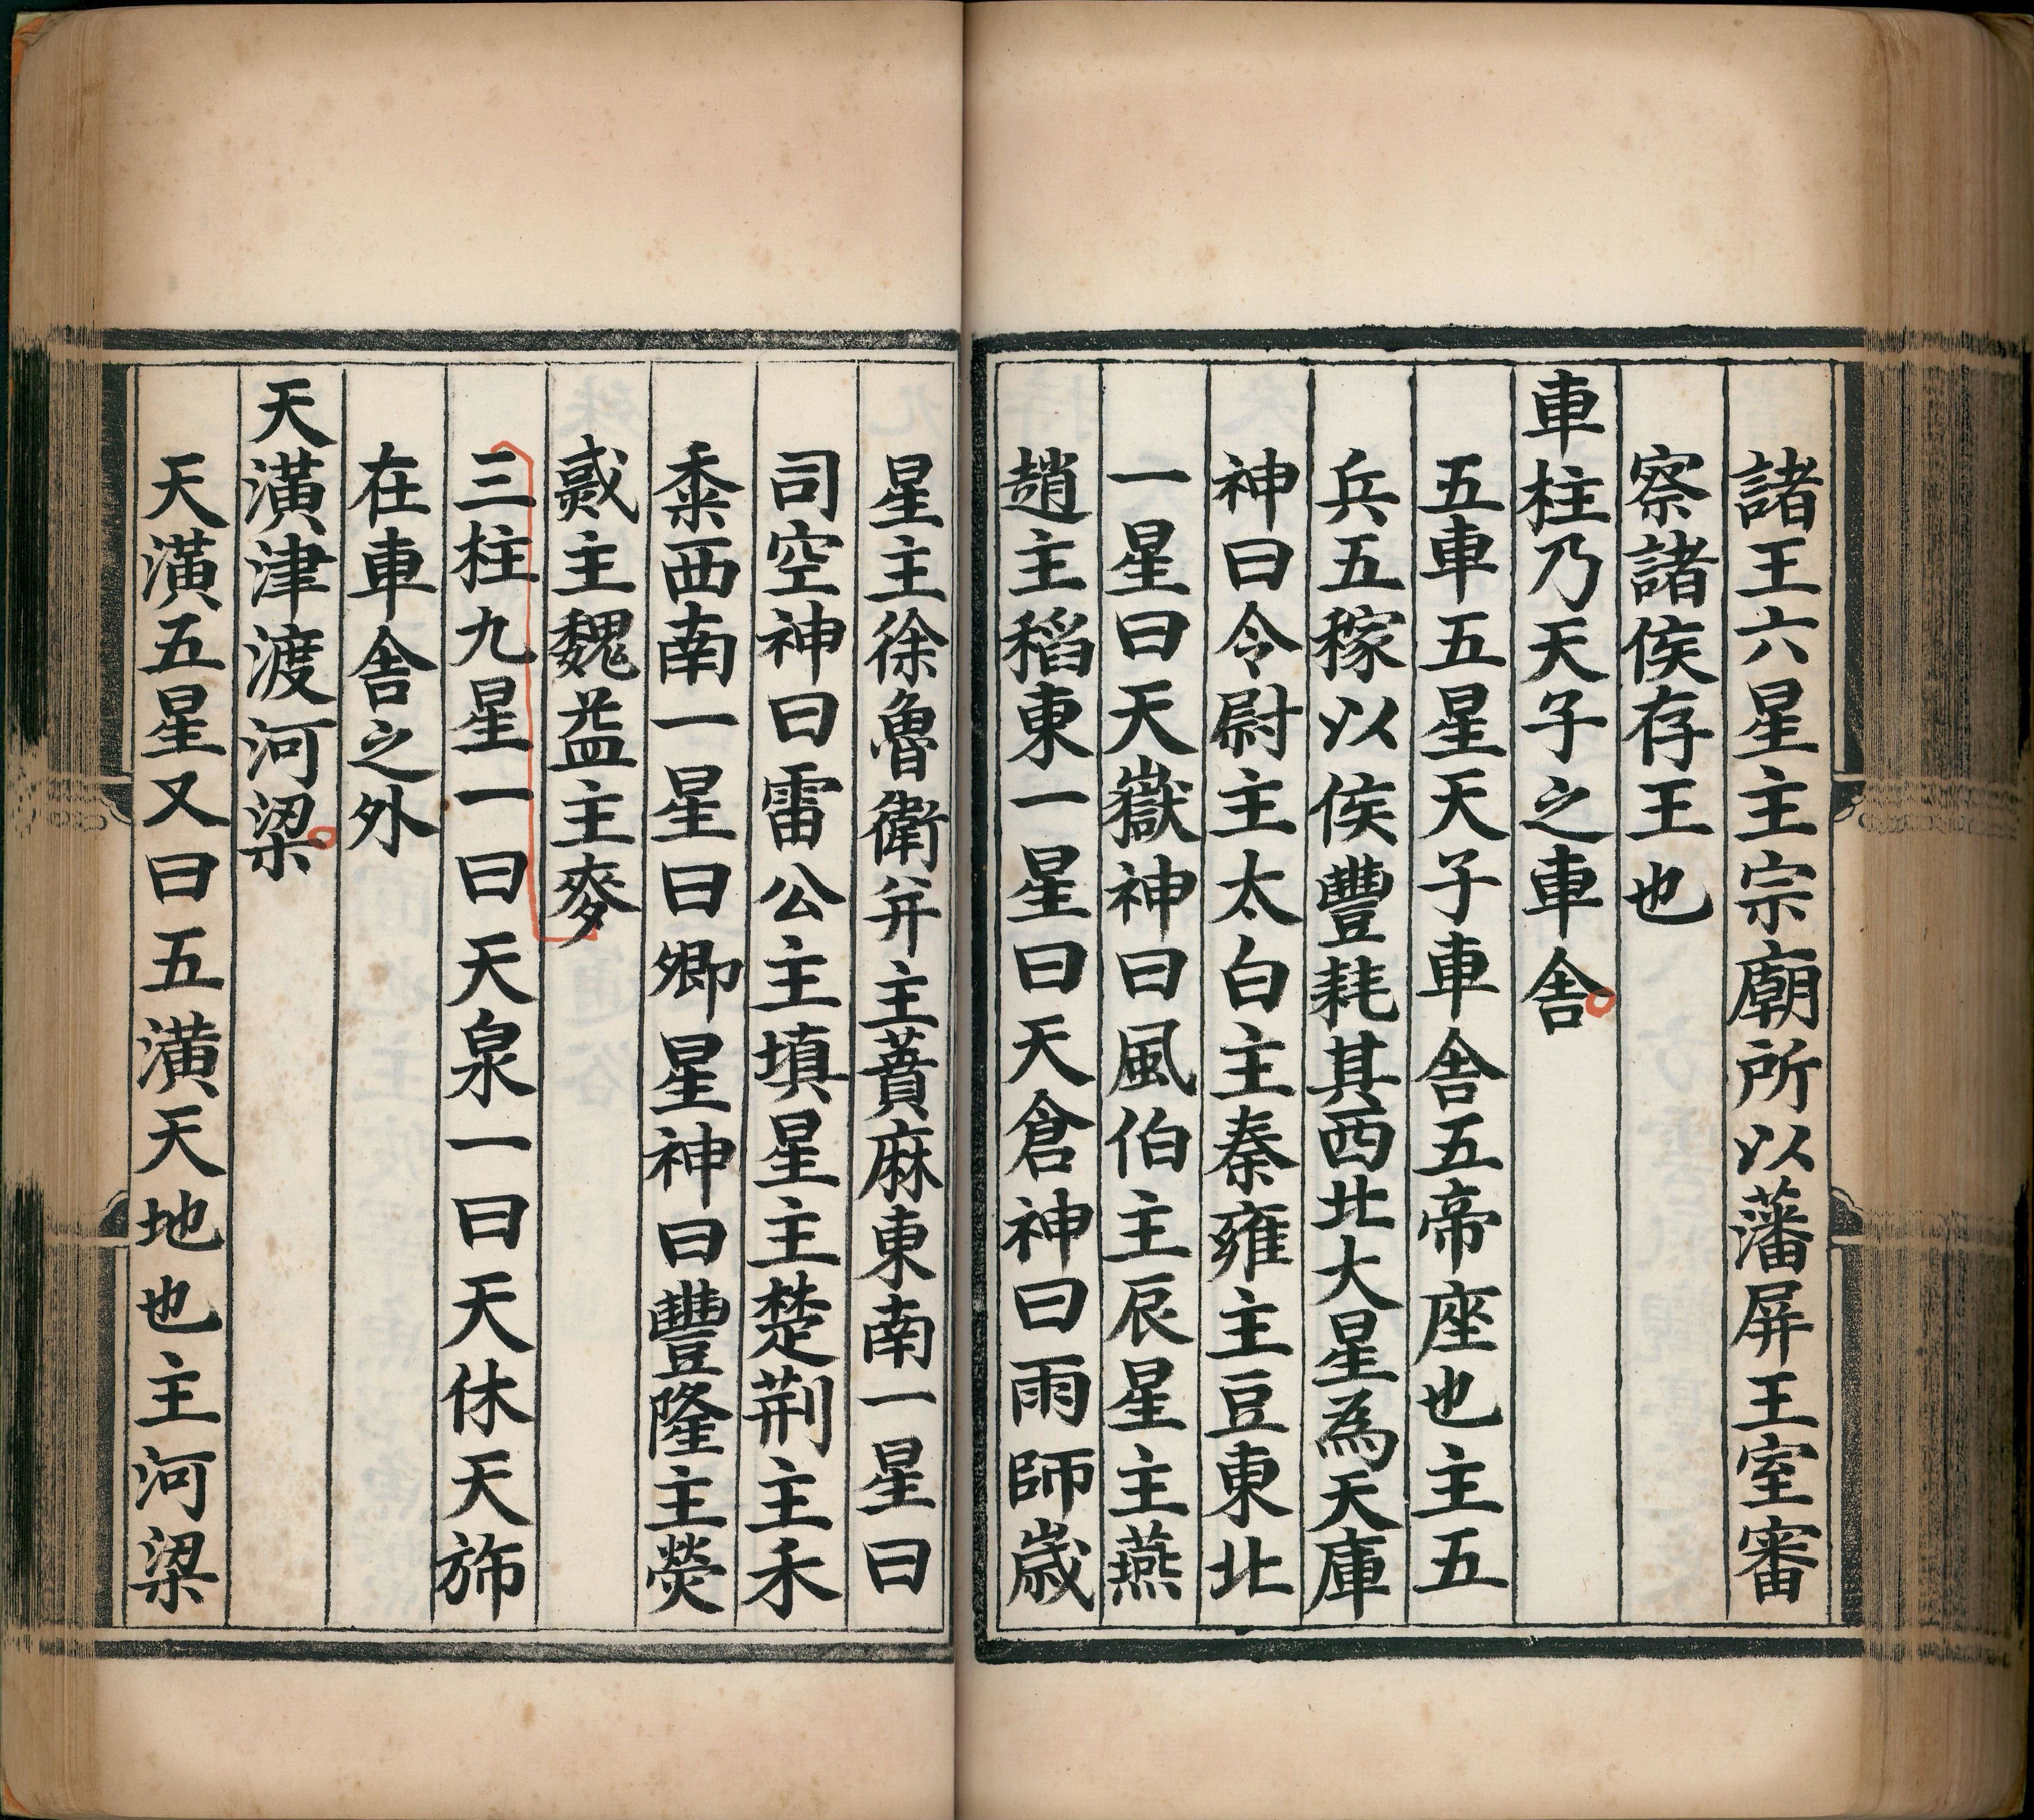 諸王六星主宗廟所以藩屏王室審
察諸侯存王也
車柱乃天子之車舎
五車五星天子車舎五帝座也主五
兵五稼以侯豐耗其西北大星為天庫
神曰令尉主太白主秦雍主豆東北
一星曰天嶽神曰風伯主辰星主燕
趙主稻東一星曰天倉神曰雨師歳
星主徐魯衛并主蕡麻東南一星曰
司空神曰雷公主填星主楚荆主禾
黍西南一星曰卿星神曰豐隆主熒
惑主魏益主麥
三柱九星一曰天泉一曰天休天斾
在車舎之外
天潢津渡河梁
天潢五星又曰五潢天地也主河梁